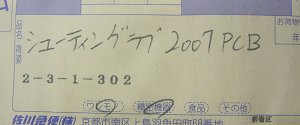 品名・荷姿
シューティングラブ2007 PCB
2-3-1-302
ワレモノ 精密機器 食品 その他
佐川急便(株) 京都市南区上鳥羽角田町68番地
新宿区